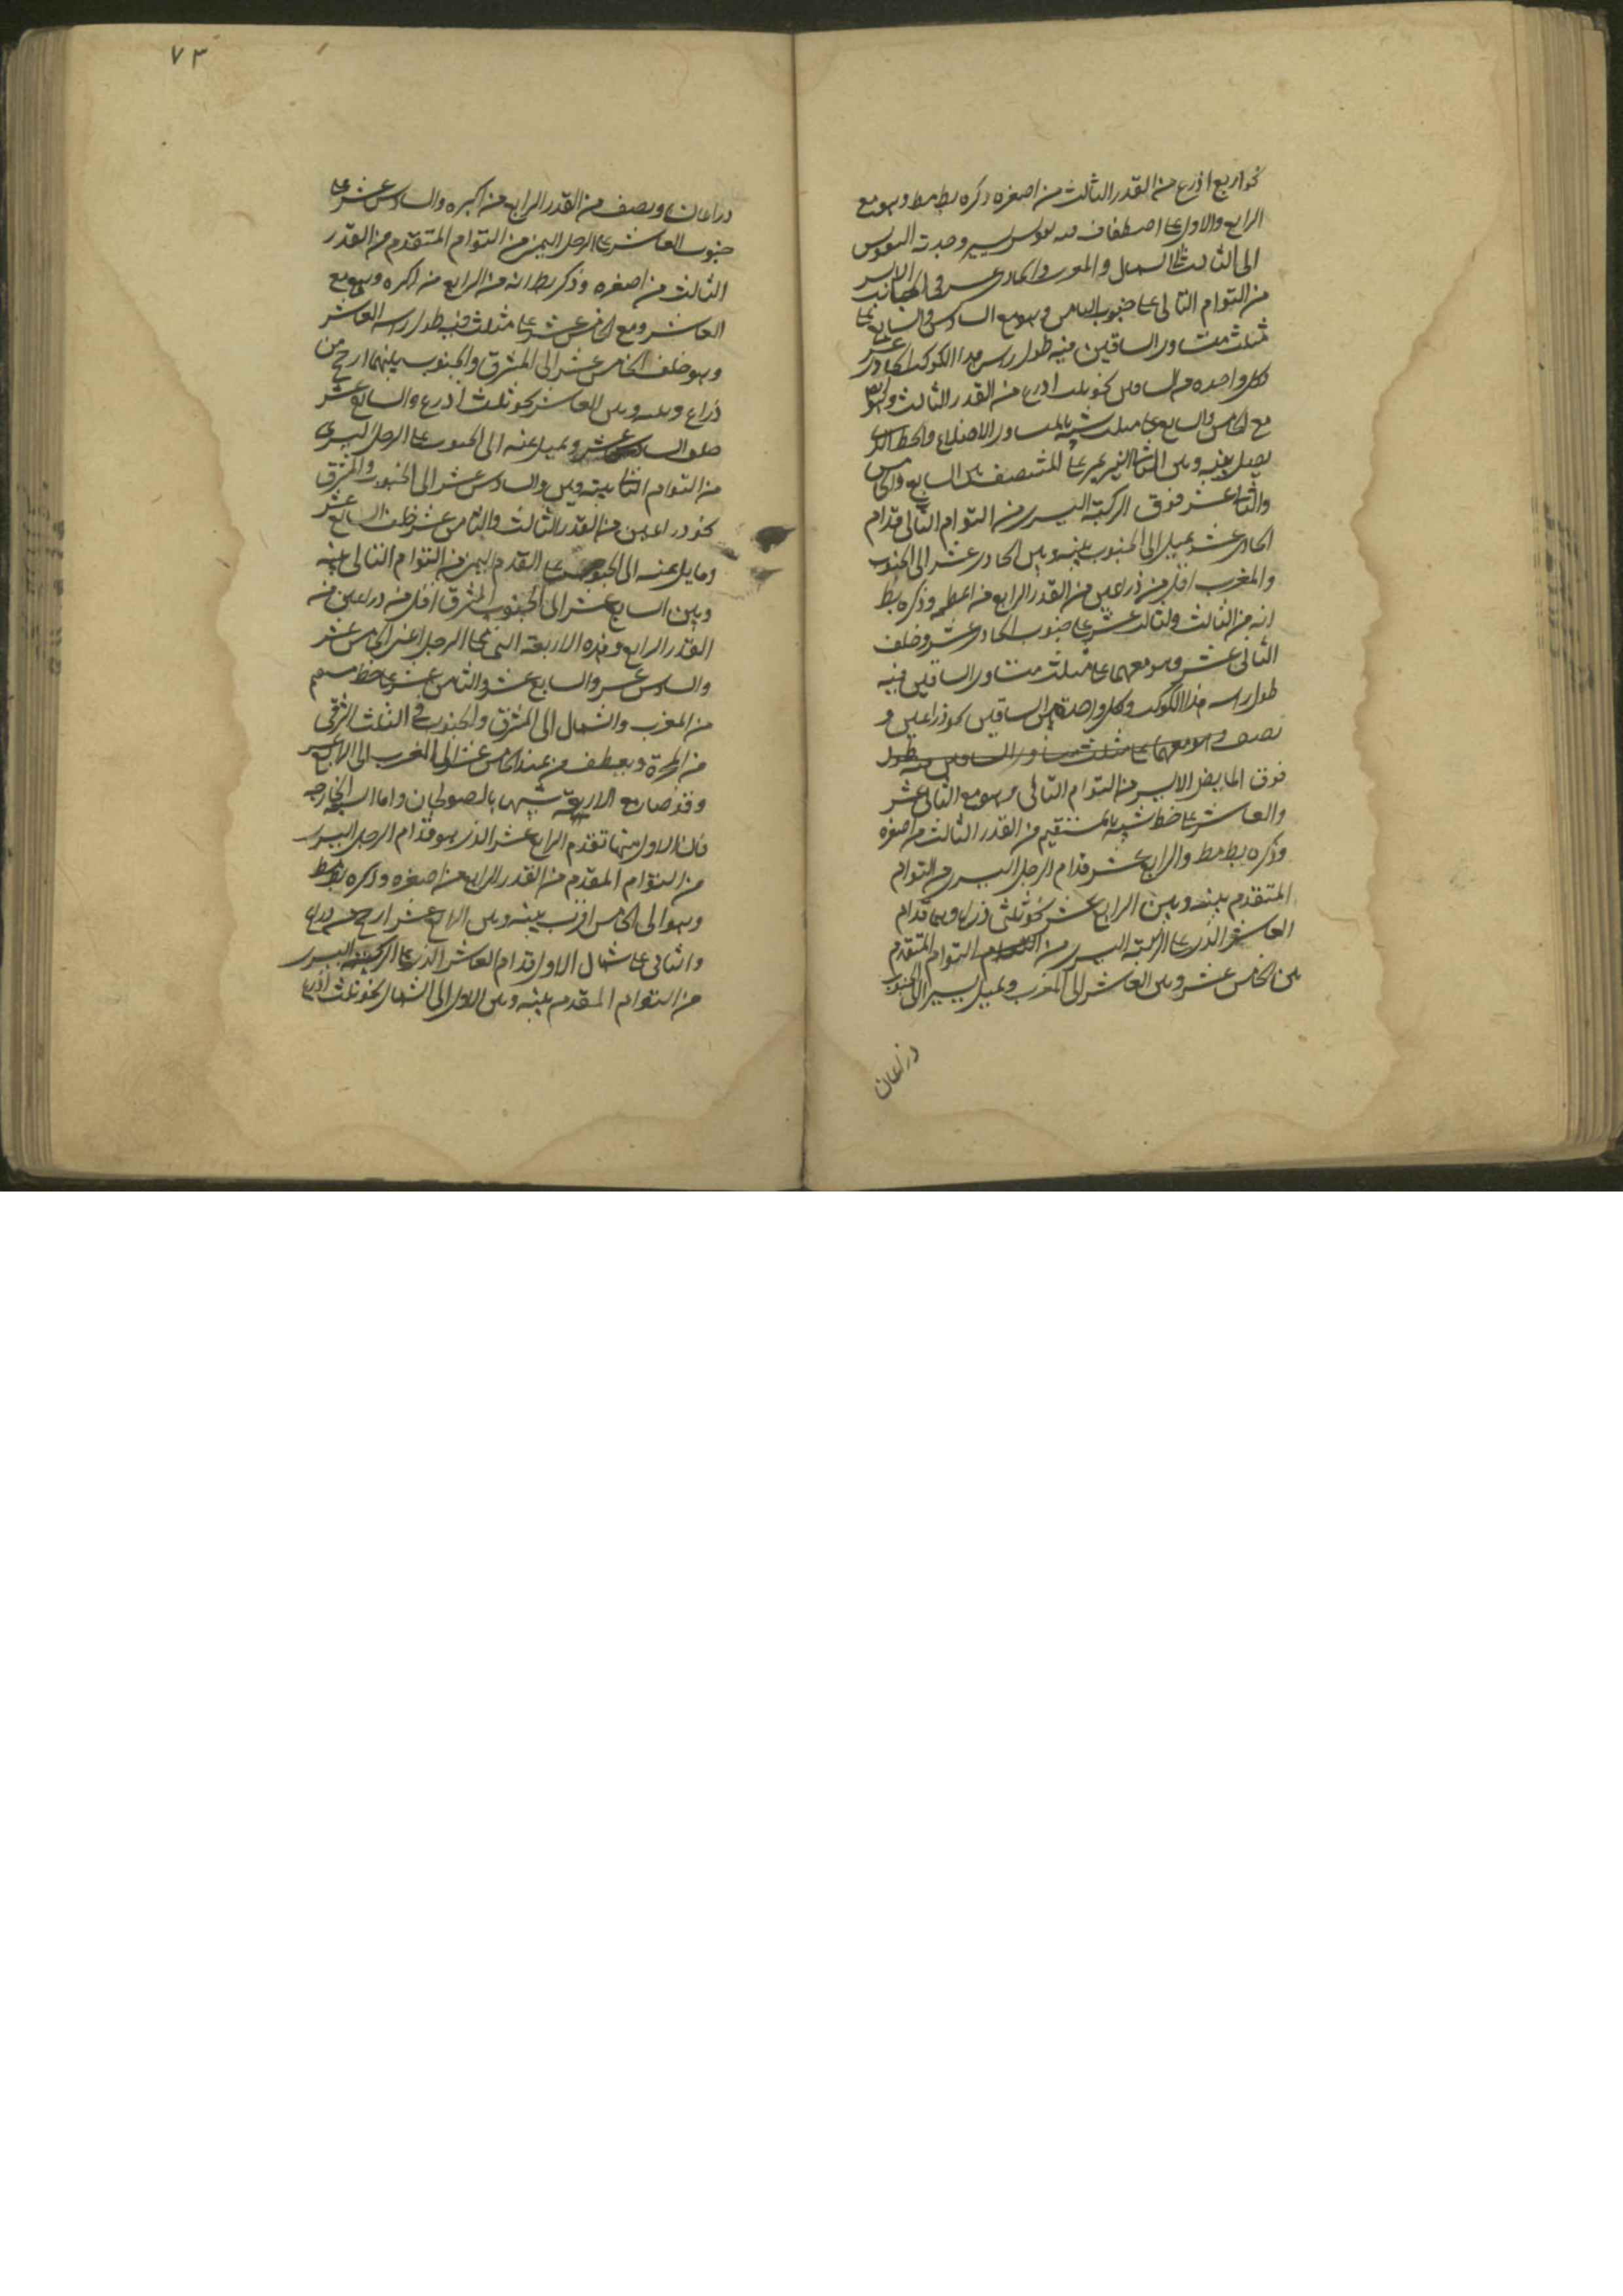 نحو اربع اذرع من القدر الثالث من اصغره وذكره بطلميوس وهو مع
الرابع والاول على اصطفاف فيه تقويس يسير وحدبة التقويس
الى الثالث الشمال والمغرب والحادى عشر فى الجانب الايسر
من التوام التالى على جنوب الثامن وهو مع السادس والسابع على
مثلث متساوى الساقين فيه طول راسه هذا الكوكب الحادى عشر
وكل واحدة من الساقين نحو ثلث اذرع من القدر الثالث وهو ايضا
مع الخامس والسابع على مثلث شبيه بالمتساوى الاضلاع والخط الذى
يصل بينه وبين النير يمر على المنتصف بين السابع والخامس
والثانى عشر فوق الركبة اليسرى من التوام التالى قدام
الحادى عشر ويميل الى الجنوب بينه وبين الحادى عشر الى الجنوب
والمغرب اقل من ذراعين من القدر الرابع من اعظمه وذكره بط
انه من الثالث والثالث عشر على جنوب الحادى عشر وخلف
الثانى عشر وهو معهما على مثلث متساوى الساقين فيه
طول راسه هذا الكوكب وكل واحدة من الساقين نحو ذراعين و
نصف وهو معهما على مثلث متساوى الساقين فيه طول
فوق المابض الايسر من التوام التالى وهو مع الثانى عشر
والعاشر على خط شبيه بالمستقيم من القدر الثالث من اصغره
وذكره بط مط والرابع عشر قدام الرجل اليسرى من التوام
المتقدم بينه وبين الرابع عشر نحو ثلثى ذراع وهما قدام
العاشر الذى على الركبة اليسرى من التوام المتقدم
بين الخامس عشر وبين العاشر الى المغرب ويميل يسير الى الجنوب
ذراعان
٧٣
ذراعان ونصف من القدر الرابع من اكبره والسادس عشر على
جنوب العاشر على الرجل اليمنى من التوام المتقدم من القدر
الثالث من اصغره وذكر بط انه من الرابع من اكبره وهو مع
العاشر ومع الخامس عشر على مثلث فيه طول راسه العاشر
وهو خلف الخامس عشر الى المشرق والجنوب بينهما ارجح من
ذراع وبينه وبين العاشر نحو ثلث اذرع والسابع عشر
خلف السادس عشر ويميل عنه الى الجنوب على الرجل اليسرى
من التوام الثانى بينه وبين السادس عشر الى الجنوب والمشرق
نحو ذراعين من القدر الثالث والثامن عشر خلف السابع عشر
ومايل عنه الى الجنوب على القدم اليمنى من التوام التالى بينه
وبين السابع عشر الى الجنوب والمشرق اقل من ذراعين من
القدر الرابع وهذه الاربعة التى على الرجل اعنى الخامس عشر
والسادس عشر والسابع عشر والثامن عشر على خط مستقيم
من المغرب والشمال الى المشرق والجنوب فى الثلث الشرقى
من المجرة وينعطف من عند الخامس عشر الى المغرب الى الرابع عشر
وقد صار مع الاربعة شبيها بالصولجان واما السبعة الخارجة
فان الاول منها تقدم الرابع عشر الذى هو قدام الرجل اليسرى
من التوام المقدم من القدر الرابع من اصغره وذكره بط مط
وهو الى الخامس اقرب بينه وبين الرابع عشر ارجح من ذراع
والثانى على شمال الاول قدام العاشر الذى على الركبة اليسرى
من التوام المقدم بينه وبين الاول الى الشمال نحو ثلث اذرع